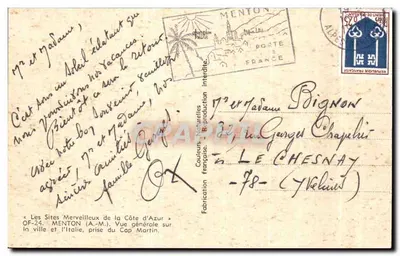 MENTON
POSTE
DE
FRANCE
Mr et Madame,
C'est sous un soleil éclatant que
nous poursuivons nos vacances.
Bientôt ce sera le retour.
bon souvenir,
agréez, Mr et Madame, nos
sincères amitiés
famille
Mr et Madame BIGNON
Rue Georges Chapelier
LE CHESNAY
-78- (Yvelines)
Couleurs naturelles
Fabrication française. - Reproduction interdite.
« Les Sites Merveilleux de la Côte d'Azur »
OF-24. MENTON (A.-M.). Vue générale sur
la ville et l'Italie, prise du Cap Martin.